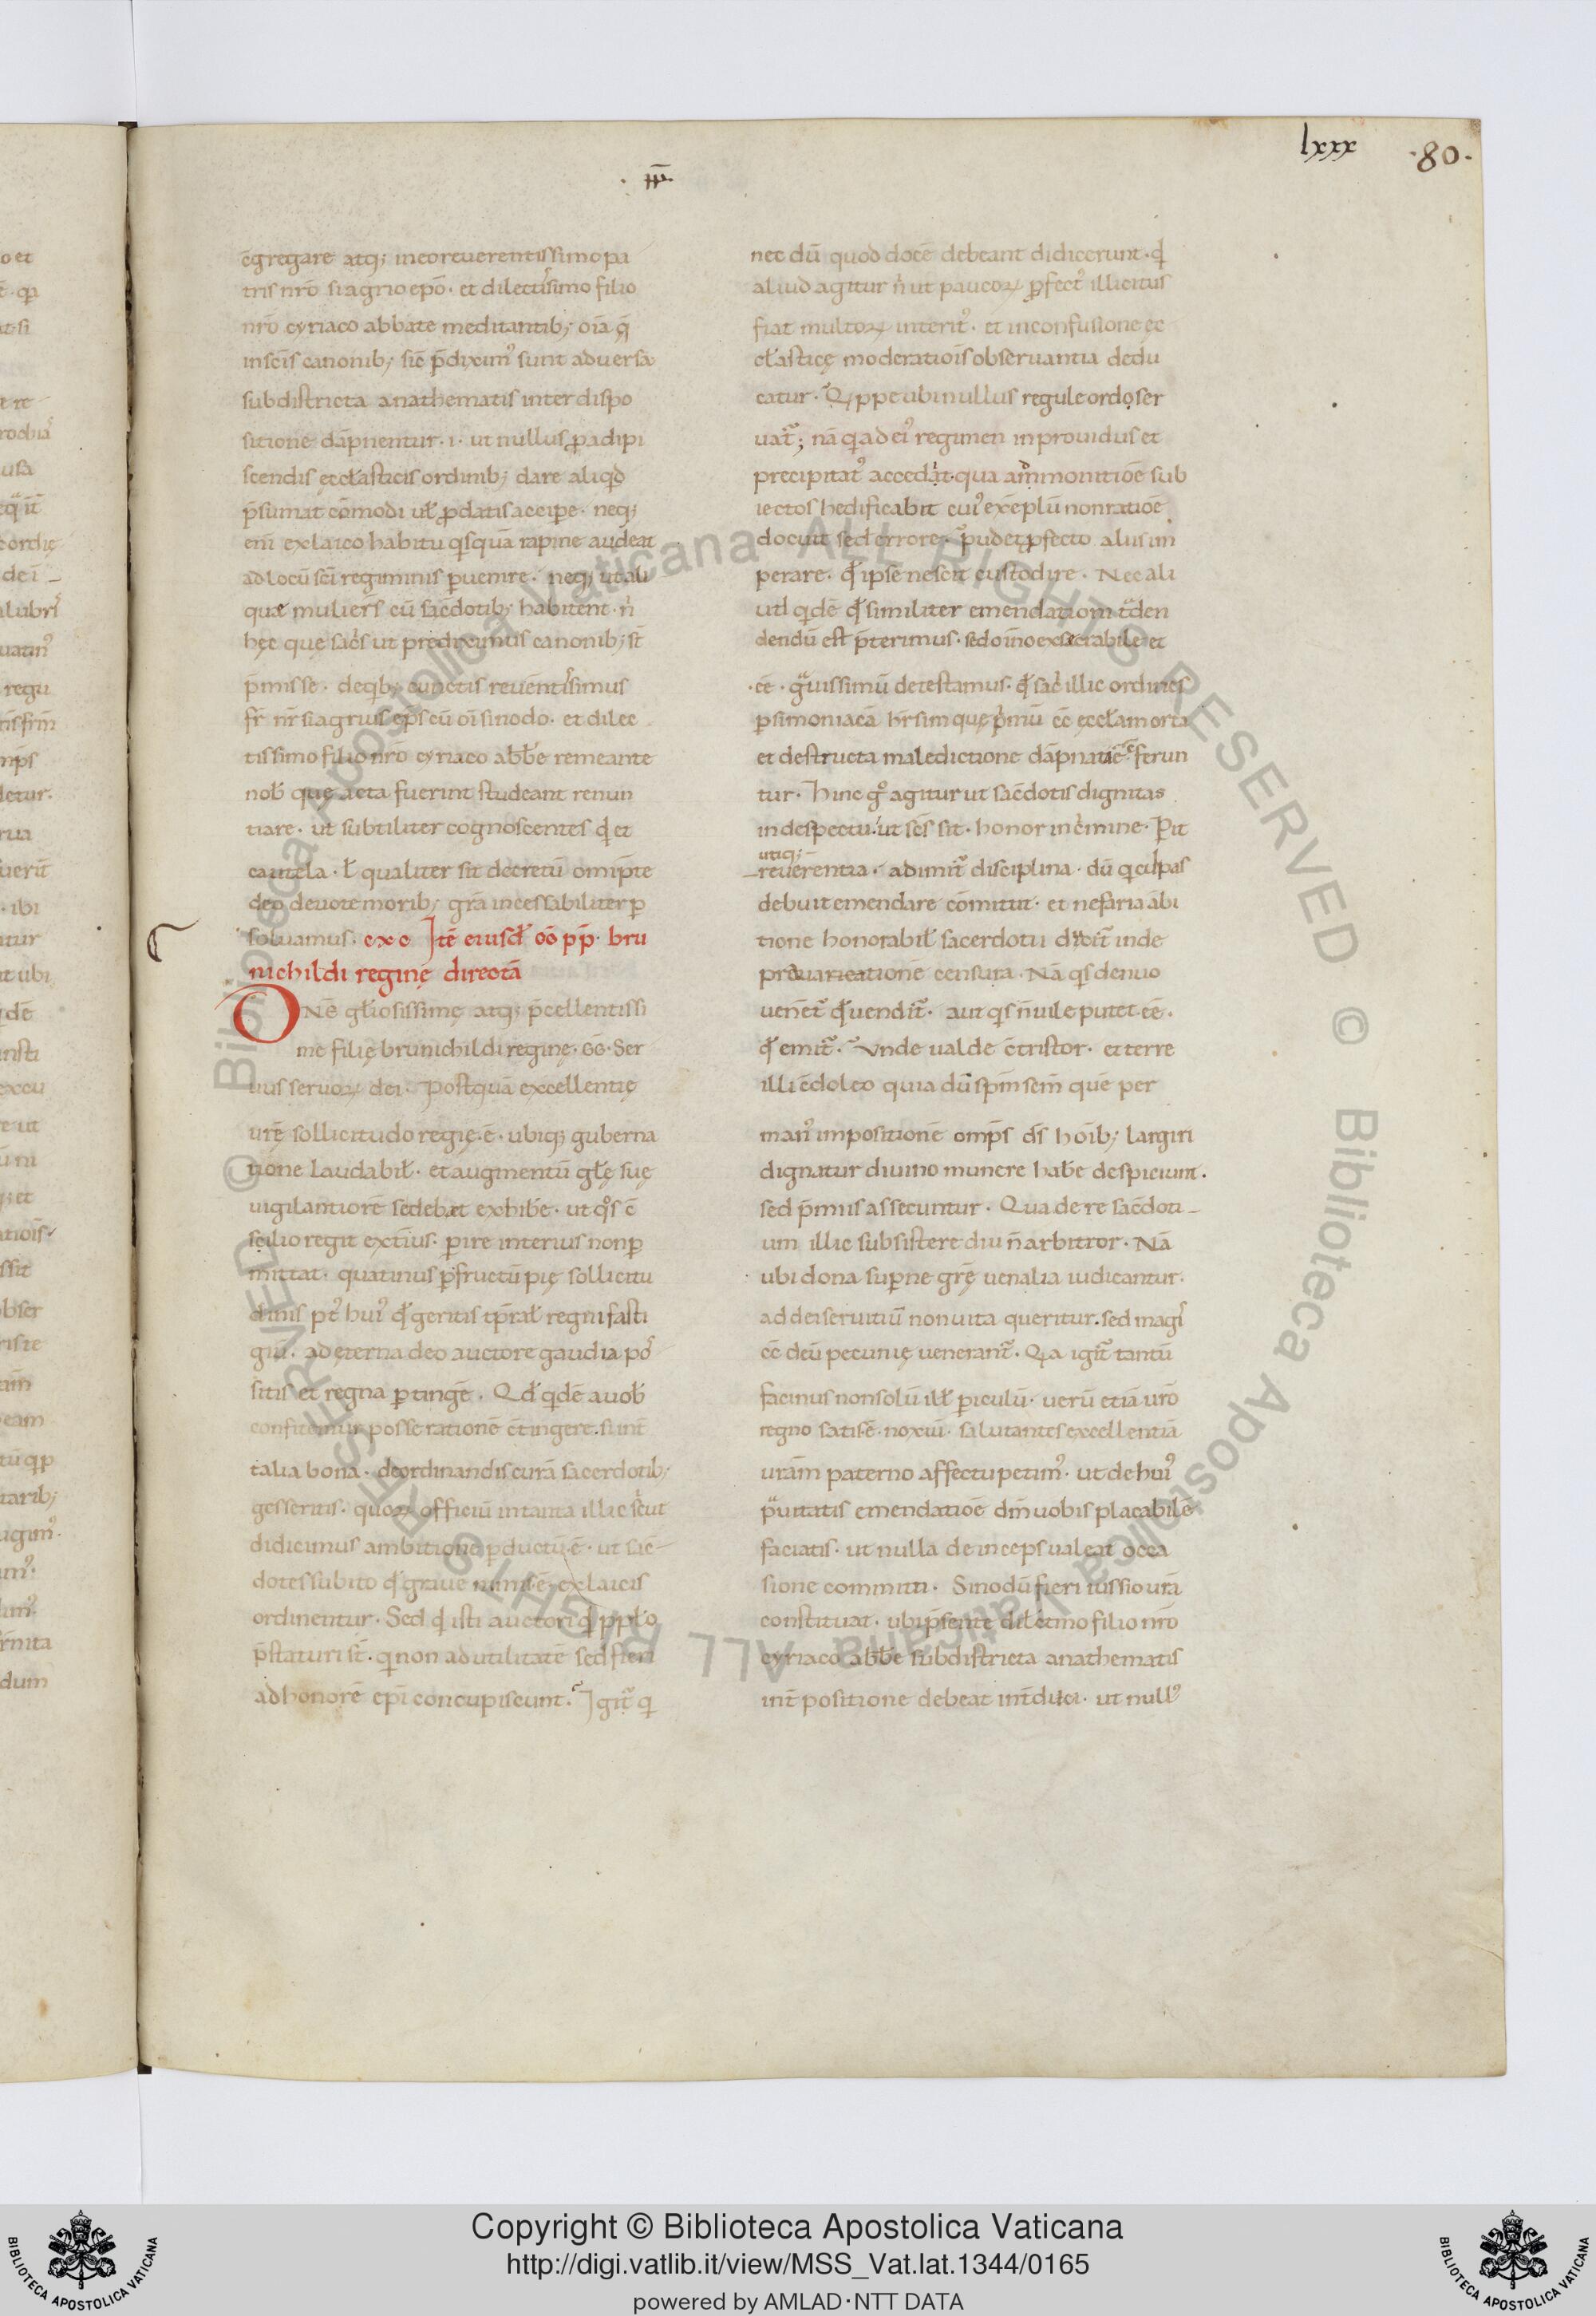 lxxx ·80·
· III
c̄gregare atq; in eo reuerentissimo pa
tris nr̄o siagrio ep̄o · et dilectissimo filio
nr̄o cyriaco abbate meditantib; oīa q̄
in sc̄is canonib; sic p̄diximꝰ sunt aduersa
sub districta anathematis inter dispo
sitione dāpnentur · i · ut nullus ꝓ adipi
scendis ęccłasticis ordinib; dare aliqđ
p̄sumat cōmodi uł ꝓ datis accipe · neq;
eni ex laico habitu qsquā rapine audeat
ad locū sc̄i regiminis ꝑuenire · neq; ut ali
quæ mulieres cū sac̄dotib; habitent · n̄
hęc quę sacris ut prediximus canonib; st̄
p̄misse · de qb; cunctis reuen̄tissimus
fr̄ nr̄ siagrius ep̄s cū oī sinodo · et dilec
tissimo filio nr̄o cyriaco abb̄e remeante
nob̄ quę acta fuerint studeant renun
tiare · ut subtiliter cognoscentes q̄ et
cautela · ł qualiter sit decretū omip̄te
deo deuote morib; gr̄a incessabiliter ꝑ
soluamus · exc Itē eiusđ oō pp̄ · bru
nichildi reginę directā
ONē głiosissimę atq; p̄cellentissi
me filię brunichildi reginę · GG · Ser
uus seruoꝝ dei · Postquā excellentię
ur̄ę sollicitudo regię · ē · ubiq; guberna
tione laudabił · et augmentū gł̄ę suę
uigilantiorē se debæt exhibe · ut qs c̄
scilio regit ext̄ius · ꝑire interius non ꝑ
mittat · quatinus p̄ fructū pię sollicitu
dinis pt̄ huiꝰ qđ geritis tp̄rał regni fasti
giū · ad ęterna deo auctore gaudia pō
sitis et regna ꝑtingē · Qđ qdē a uob̄
confitemur posse rationē c̄tingere · sunt
talia bona · de ordinandis curā sacerdotib;
gesseritis · quoꝝ officiū in tanta illic sicut
didicimus ambitione ꝑductū · ē · ut sac̄
dotes subito qđ graue nimis · ē · ex laicis
ordinentur · Sed q̄ isti auctori q̄ ppło
p̄staturi st̄ · q non ad utilitatē sed fieri
ad honorē ep̄i concupiscunt · Igit̄ q
nec dū quod docē debeant didicerunt · q̄
aliud agitur n̄ ut paucoꝝ ꝓfectꝰ illicitus
fiat multoꝝ interitꝰ · et in confusione ęc
cłasticę moderatiois obseruantia dedu
catur · Qippe ubi nullus regule ordo ser
uat̄; nā q ad eiꝰ regimen in prouidus et
precipitatꝰ accedit · qua ammonitioe sub
iectos hedificabit cuiꝰ exēplū non ratioē
docuit sed errore · pudet ꝓfecto aliis im
perare · qđ ipse nescit custodire · Nec ali
utł qdē qđ similiter emendationi tden
dendū est p̄terimus · sed oīno exsecrabile et
· ēē · grauissimū detestamus · qđ sacri illic ordines
ꝑ simoniacā hr̄sim quę p̄mū cc̄ ęccłam orta
et destructa maledictione dāpnatiē · ferun
tur · Hinc gꝰ agitur ut sac̄dotis dignitas
in despectu · ut sc̄s sit · honor in c̄mine · Pit
utiq;
reuerentia · adimit̄ disciplina · dū q culpas
debuit emendare cōmitit · et nefaria ābi
tione honorabił sacerdotii dicit̄ inde
preuaricatione censura · Nā qs denuo
venet̄ qđ uendit̄ · aut qs n̄ uile putet · ēē ·
qđ emit̄ · Vnde ualde c̄tristor · et terre
illi c̄doleo quia dū sp̄m sc̄m quē per
manꝰ impositionē omp̄s ds̄ hoīb; largiri
dignatur diuino munere habe despiciunt ·
sed p̄miis assecuntur · Qua de re sac̄doti
um illic subsistere diu n̄ arbitror · Nā
ubi dona supne gr̄ę uenalia iudicantur ·
ad dei seruitiū non uita queritur · sed magis
cc̄ deū pecunię uenerant̄ · Qa igit̄ tantū
facinus non solū ill̄ piculū · uerū etiā ur̄o
regno satis · ē · noxiū · salutantes excellentiā
urām paterno affectu petimꝰ · ut de huiꝰ
prauitatis emendatioē dm̄ uobis placabilē
faciatis · ut nulla de inceps ualeat occa
sione committi · Sinodū fieri iussio urā
constituat · ubi p̄sente dilectmo filio nr̄o
cyriaco abb̄e sub districta anathematis
int̄ positione debeat int̄dici · ut nullꝰ
© Biblioteca Apostolica Vaticana ALL RIGHTS RESERVED © Biblioteca Apostolica Vaticana ALL RIGHTS RESERVED
BIBLIOTECA APOSTOLICA VATICANA
Copyright © Biblioteca Apostolica Vaticana
http://digi.vatlib.it/view/MSS_Vat.lat.1344/0165
powered by AMLAD·NTT DATA
BIBLIOTECA APOSTOLICA VATICANA